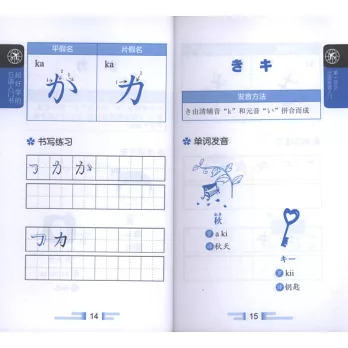 平假名 片假名
ka ka
か カ
书写练习
フ カ か
フ カ
14
き キ
发音方法
き由清辅音“k”和元音“い”拼合而成
单词发音
あき
秋
a ki
秋天
キー
kii
钥匙
15